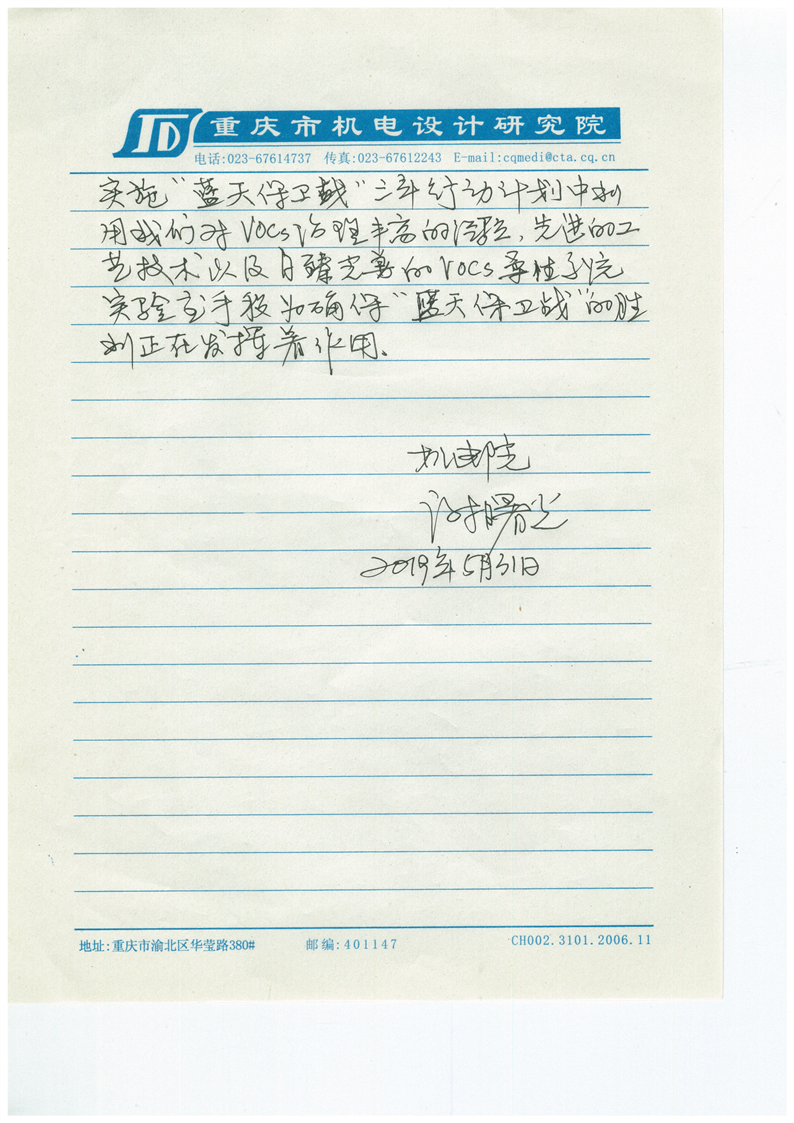 JD 重庆市机电设计研究院
电话:023-67614737 传真:023-67612243 E-mail:cqmedi@cta.cq.cn
实施“蓝天保卫战”三年行动计划中利
用我们对VOCs治理丰富的经验,先进的工
艺技术以及日臻完善的VOCs柔性系统
实验室手段为确保“蓝天保卫战”的胜
利正在发挥着作用.
机电院
曙光
2019年5月31日
地址:重庆市渝北区华莹路380# 邮编:401147 CH002.3101.2006.11